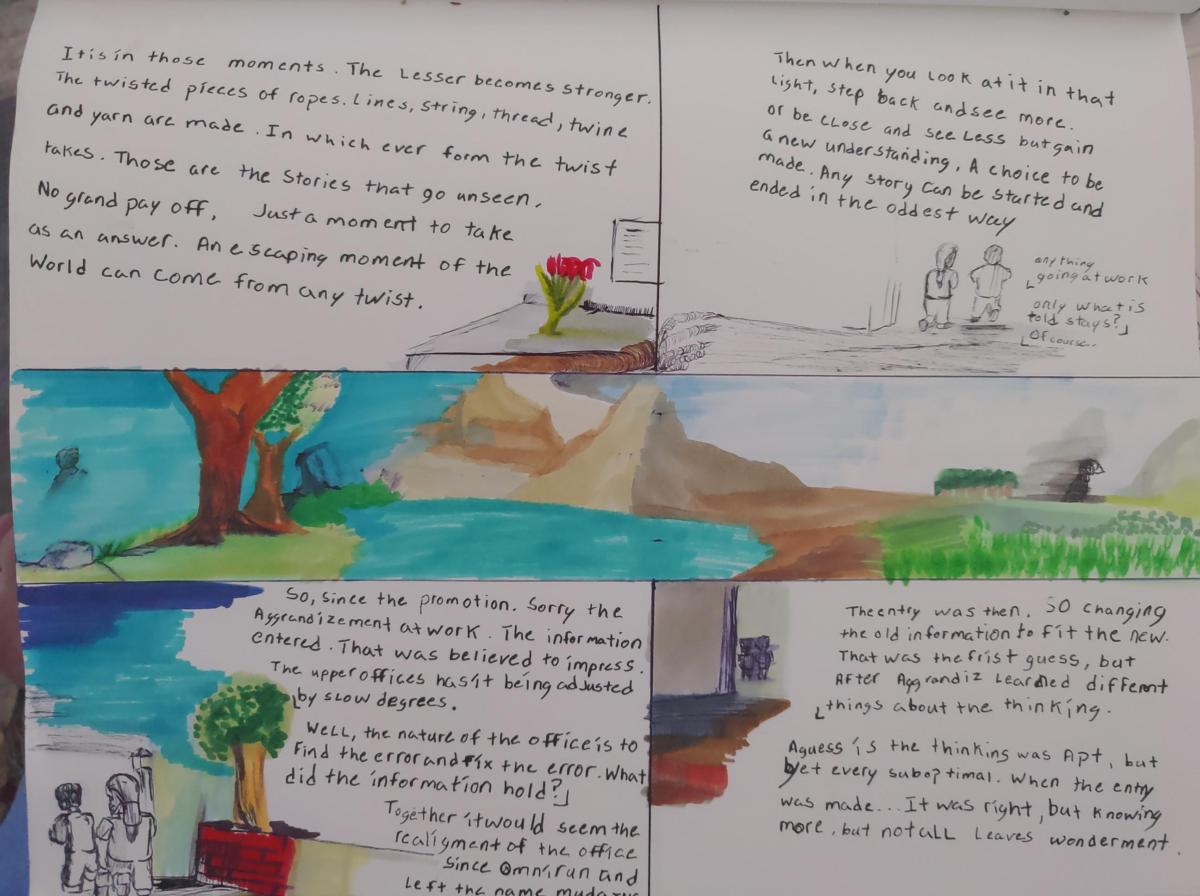 It is in those moments. The Lesser becomes stronger.
The twisted pieces of ropes. Lines, string, thread, twine
and yarn are made. In which ever form the twist
takes. Those are the stories that go unseen.
No grand pay off, Just a moment to take
as an answer. An escaping moment of the
World can come from any twist.
Then when you look at it in that
light, step back and see more.
or be close and see less but gain
a new understanding, A choice to be
made. Any story can be started and
ended in the oddest way
anything
going at work
only what is
told stays?
Of course..
So, since the promotion. Sorry the
Aggrandizement at work. The information
entered. That was believed to impress.
The upper offices has it being adjusted
by slow degrees.
Well, the nature of the office is to
find the error and fix the error. What
did the information hold?
Together it would seem the
realigment of the office
since Omnirun and
left the name
The entry was then. SO changing
the old information to fit the new.
That was the frist guess, but
After Aggrandiz Learned different
things about the thinking.
A guess is the thinking was Apt, but
yet every suboptimal. When the entry
was made... It was right, but knowing
more, but not all Leaves wonderment.